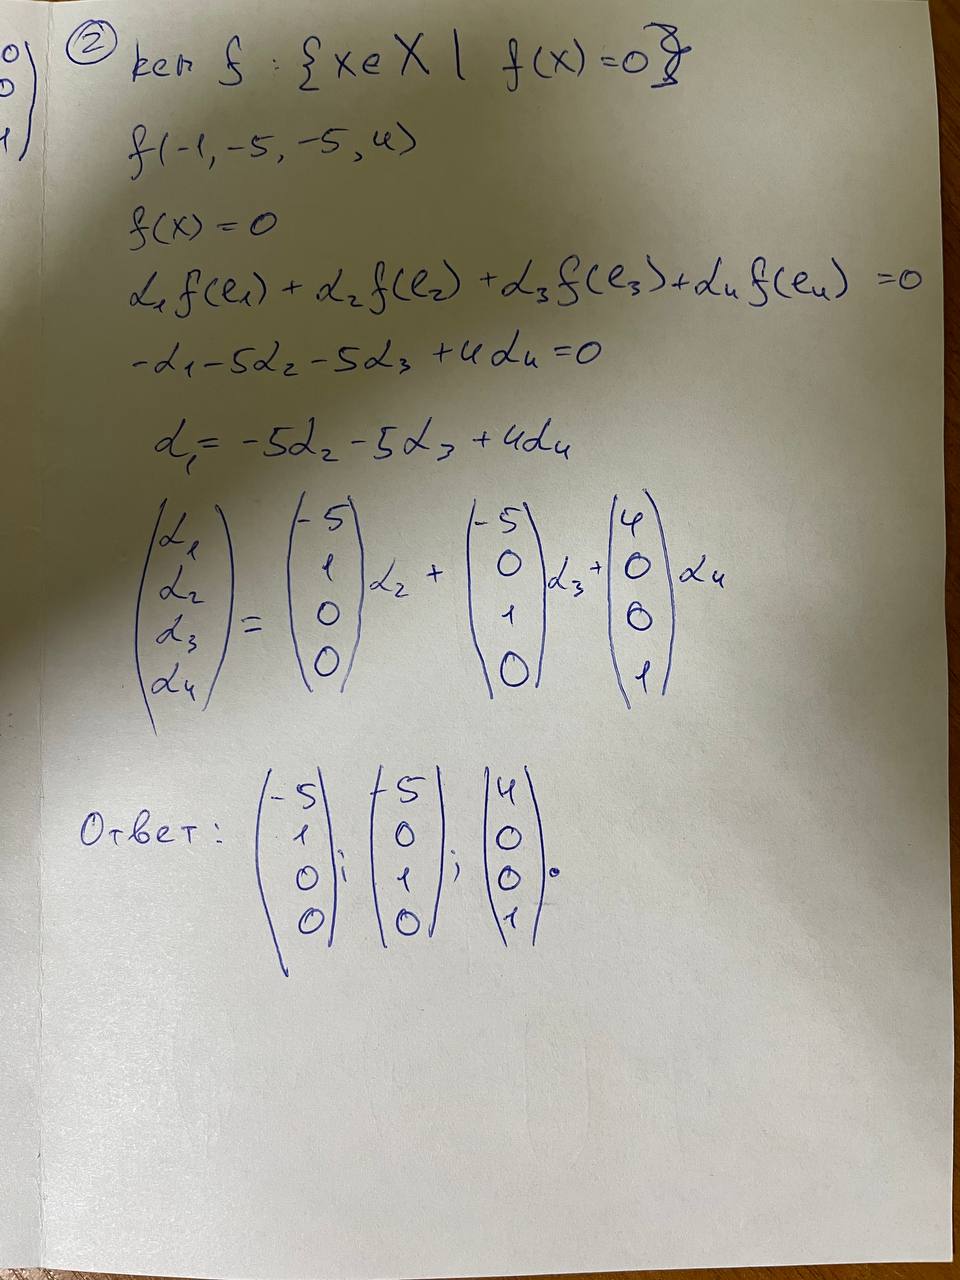 0
0
1
② ker f : {x∈X | f(x) = 0}
f(-1, -5, -5, 4)
f(x) = 0
α₁f(e₁) + α₂f(e₂) + α₃f(e₃) + α₄f(e₄) = 0
-α₁ - 5α₂ - 5α₃ + 4α₄ = 0
α₁ = -5α₂ - 5α₃ + 4α₄
(α₁ α₂ α₃ α₄) = (-5 1 0 0) α₂ + (-5 0 1 0) α₃ + (4 0 0 1) α₄
Ответ: (-5 1 0 0); (-5 0 1 0); (4 0 0 1).